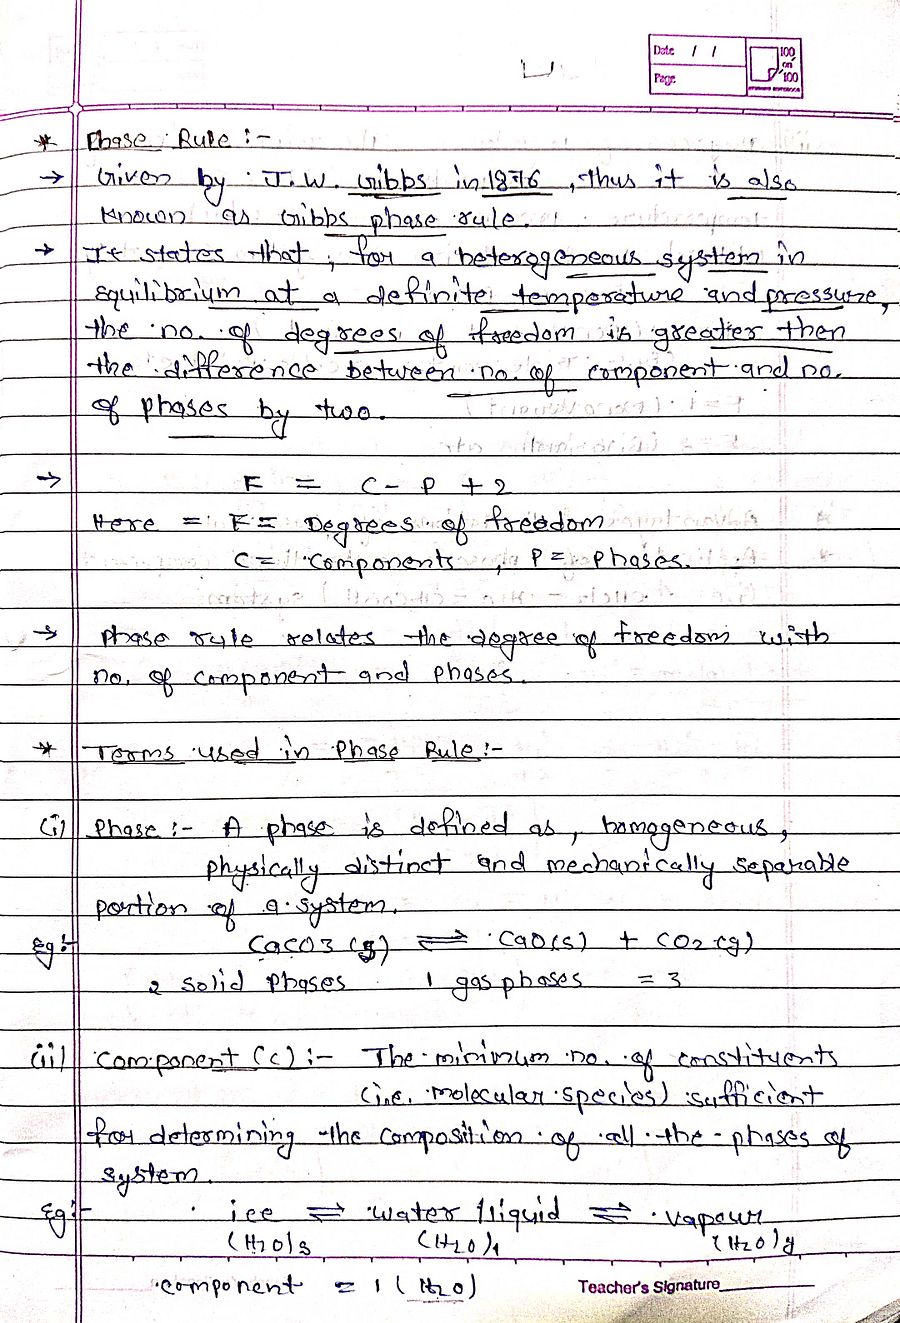 Date / /
Page
100 on 100
* Phase Rule :-
→ Given by J.W. Gibbs in 1876, thus it is also
known as Gibbs phase rule.
→ It states that, for a heterogeneous system in
equilibrium at a definite temperature and pressure,
the no. of degrees of freedom is greater then
the difference between no. of component and no.
of phases by two.
→ F = C - P + 2
Here = F = Degrees of freedom
C = components, P = phases.
→ Phase rule relates the degree of freedom with
no. of component and phases.
* Terms used in Phase Rule :-
(i) Phase :- A phase is defined as, homogeneous,
physically distinct and mechanically separable
portion of a system.
Eg:- CaCO3 (s) ⇌ CaO(s) + CO2 (g)
2 solid phases 1 gas phases = 3
(ii) Component (C) :- The minimum no. of constituents
(i.e. molecular species) sufficient
for determining the composition of all the phases of
system.
Eg:- ice ⇌ water/liquid ⇌ vapour
(H2O)s (H2O)l (H2O)g
component = 1 (H2O)
Teacher's Signature